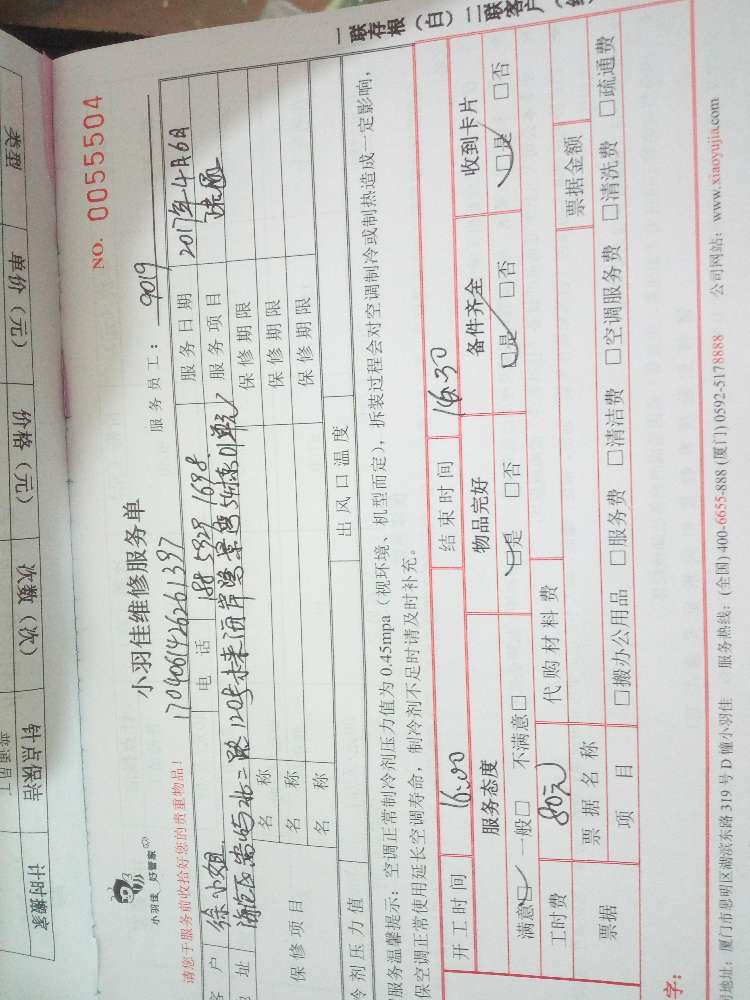 一联存根（白）二联客户
NO. 0055504
小羽佳 好管家
小羽佳维修服务单
服务员工：9019
1704061426261397
请您于服务前收拾好您的贵重物品！
客户 徐小姐 电话 188 5929 1698 服务日期 2017年4月6日
地址 服务项目
保修项目 名称 保修期限
名称 保修期限
名称 保修期限
冷剂压力值 出风口温度
服务温馨提示：空调正常制冷剂压力值为0.45mpa（视环境、机型而定），拆装过程会对空调制冷或制热造成一定影响，
保空调正常使用延长空调寿命，制冷剂不足时请及时补充。
开工时间 16:00 结束时间 16:30
服务态度 物品完好 备件齐全 收到卡片
满意☑ 一般□ 不满意□ ☑是 □否 ☑是 □否 ☑是 □否
工时费 80元 代购材料费
票据 票据名称 票据金额
项目 □搬办公用品 □服务费 □清洁费 □空调服务费 □清洗费 □疏通费
字：
司地址：厦门市思明区湖滨东路319号D幢小羽佳 服务热线：(全国) 400-6655-888 (厦门) 0592-5178888 公司网站：www.xiaoyujia.com
类型
单价（元）
价格（元）
次数（次）
钟点保洁
普通员工
计时搬家